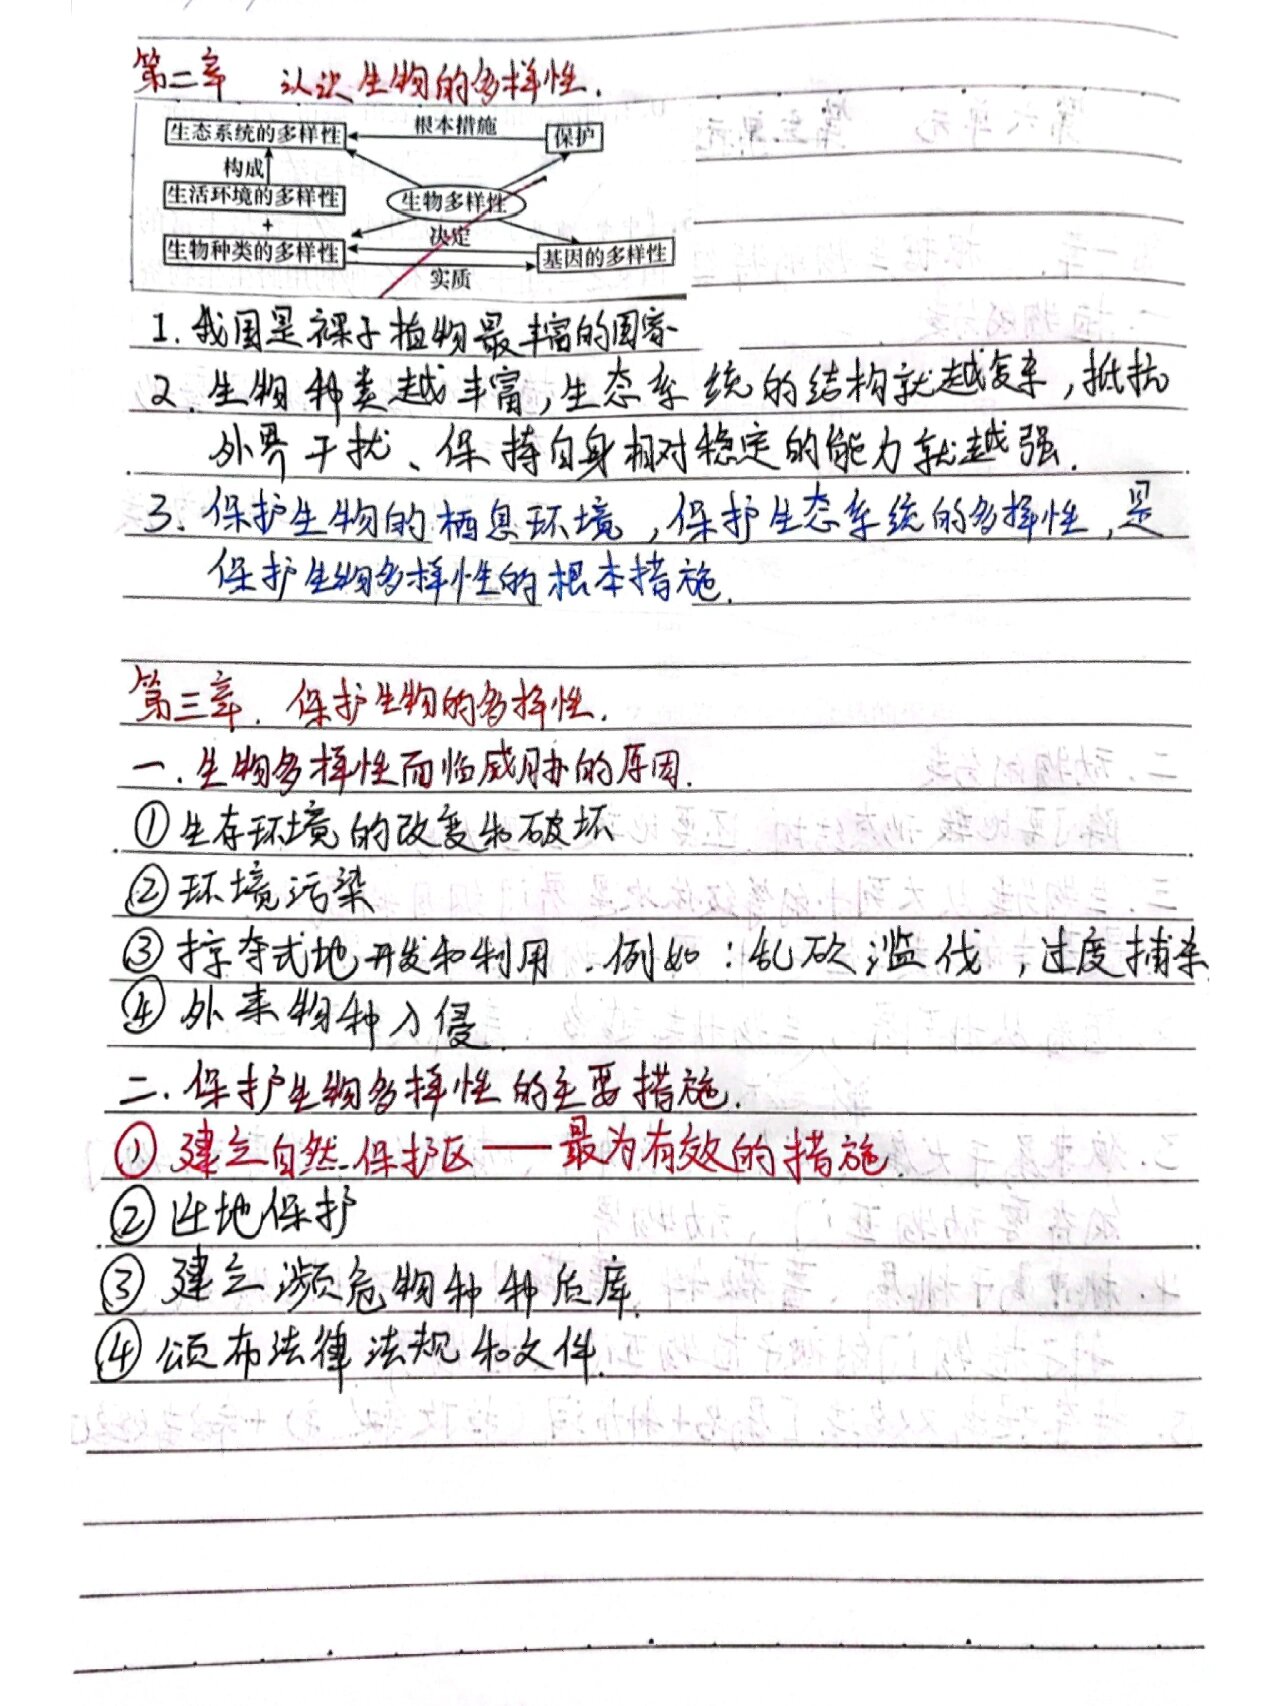 第二章 认识生物的多样性.
生态系统的多样性 根本措施 保护
构成
生活环境的多样性 生物多样性
+ 决定
生物种类的多样性 基因的多样性
实质
1. 我国是裸子植物最丰富的国家
2. 生物种类越丰富,生态系统的结构就越复杂,抵抗
外界干扰、保持自身相对稳定的能力就越强.
3. 保护生物的栖息环境,保护生态系统的多样性,是
保护生物多样性的根本措施.
第三章. 保护生物的多样性.
一. 生物多样性面临威胁的原因.
①生存环境的改变和破坏
②环境污染
③掠夺式地开发和利用.例如:乱砍滥伐,过度捕杀
④外来物种入侵.
二. 保护生物多样性的主要措施.
①建立自然保护区——最为有效的措施.
②迁地保护
③建立濒危物种种质库.
④颁布法律法规和文件.